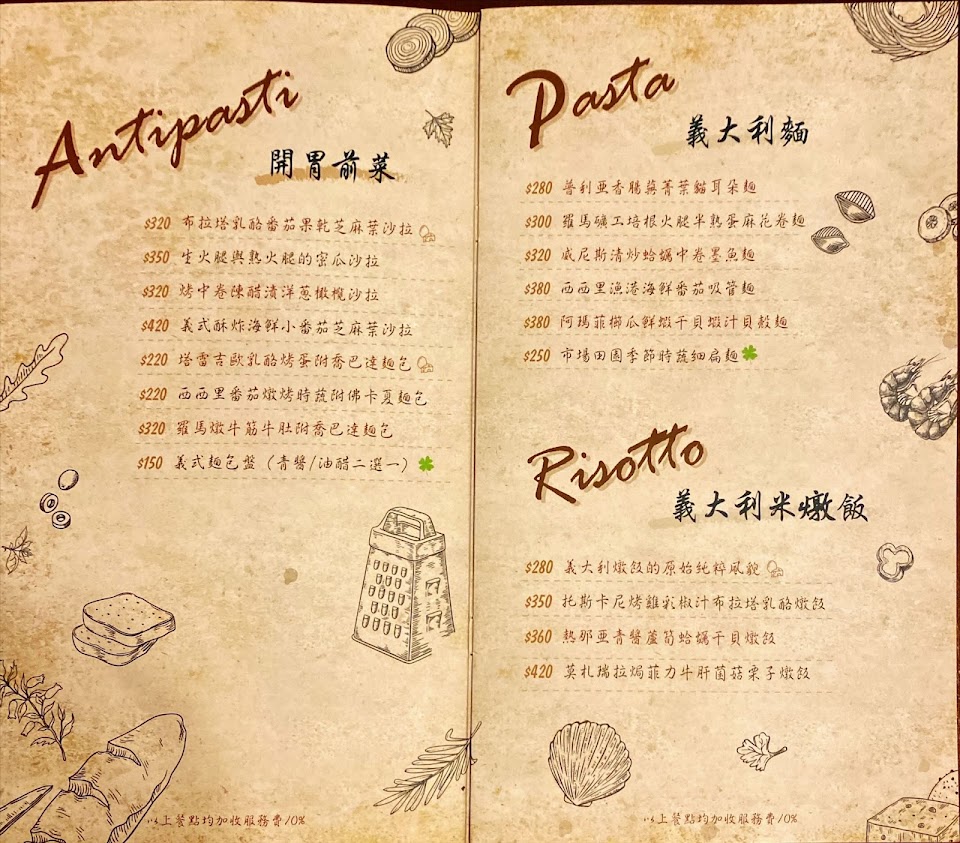 Antipasti
開胃前菜
$320 布拉塔乳酪番茄果乾芝麻葉沙拉
$350 生火腿與熟火腿的密瓜沙拉
$320 烤中卷陳醋漬洋蔥橄欖沙拉
$420 義式酥炸海鮮小番茄芝麻葉沙拉
$220 塔雷吉歐乳酪烤蛋附喬巴達麵包
$220 西西里番茄燉烤時蔬附佛卡夏麵包
$320 羅馬燉牛筋牛肚附喬巴達麵包
$150 義式麵包盤（青醬/油醋二選一）
以上餐點均加收服務費10%
Pasta
義大利麵
$280 普利亞香腸蕪菁葉貓耳朵麵
$300 羅馬礦工培根火腿半熟蛋麻花卷麵
$320 威尼斯清炒蛤蠣中卷墨魚麵
$380 西西里漁港海鮮番茄吸管麵
$380 阿瑪菲櫛瓜鮮蝦干貝蝦汁貝殼麵
$250 市場田園季節時蔬細扁麵
Risotto
義大利米燉飯
$280 義大利燉飯的原始純粹風貌
$350 托斯卡尼烤雞彩椒汁布拉塔乳酪燉飯
$360 熱那亞青醬蘆筍蛤蠣干貝燉飯
$420 莫札瑞拉焗菲力牛肝菌菇栗子燉飯
以上餐點均加收服務費10%